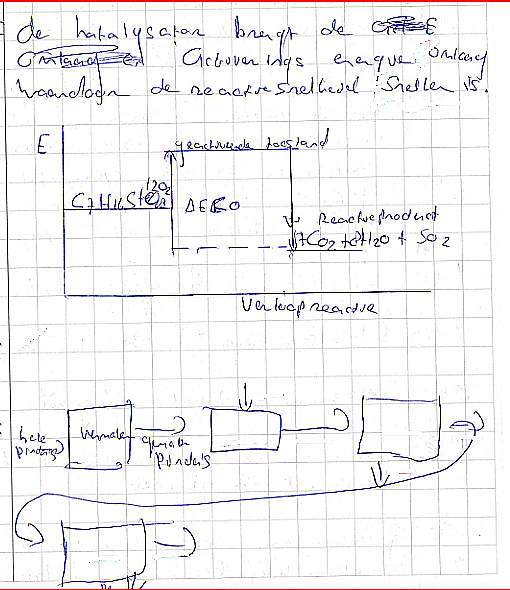 de katalysator brengt de
Activerings energie omlaag
waardoor de reactiesnelheid sneller is.
E
geactiveerde toestand
12O2
C7H16S+
ΔE<0
Reactieproduct
7CO2 + 8H2O + SO2
Verloop reactie
hele
pinda's
vermalen
gemalen
pinda's